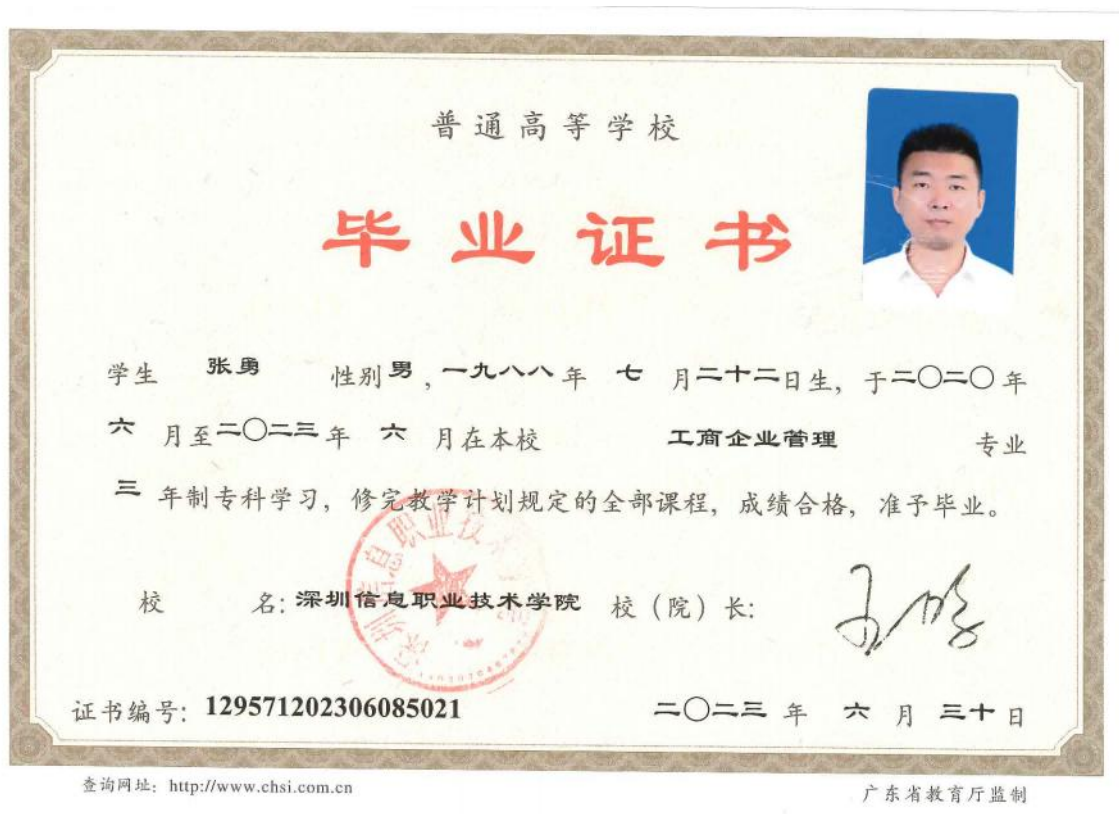 普通高等学校
毕业证书
学生 张勇 性别 男 , 一九八八 年 七 月 二十二 日生, 于 二〇二〇 年
六 月至 二〇二三 年 六 月在本校 工商企业管理 专业
三 年制专科学习, 修完教学计划规定的全部课程, 成绩合格, 准予毕业。
校 名: 深圳信息职业技术学院 校（院）长:
证书编号: 129571202306085021 二〇二三 年 六 月 三十 日
查询网址: http://www.chsi.com.cn 广东省教育厅监制